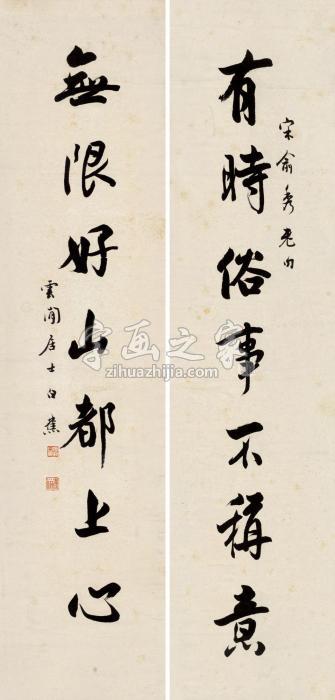 有時俗事不稱意
宋俞秀老句
無限好山都上心
雲間居士白蕉
字画之家
zihuazhijia.com